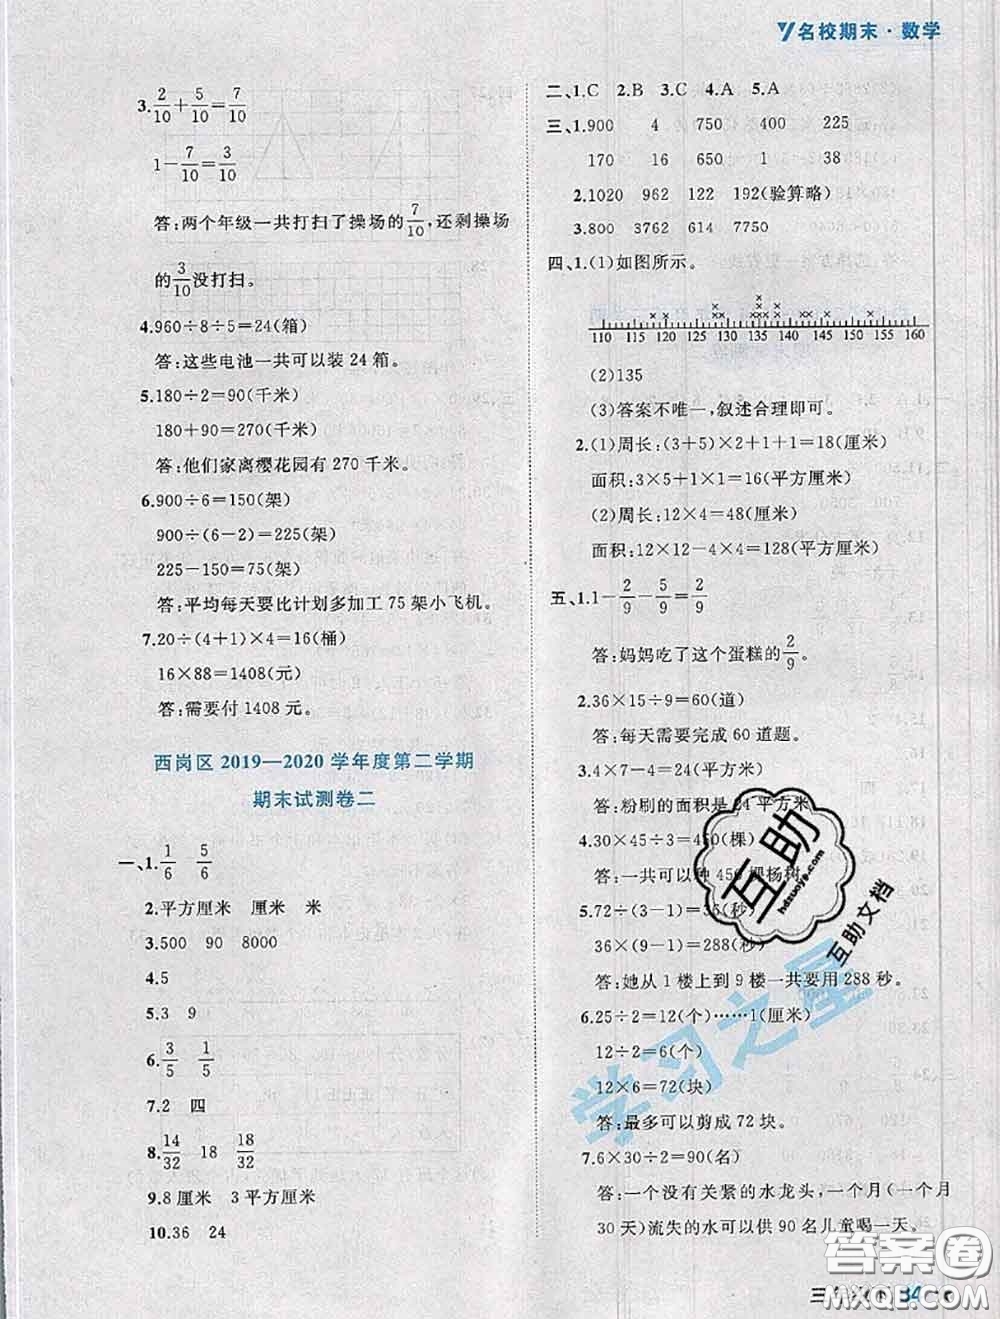 名校期末·数学
3. 2/10+5/10=7/10
1-7/10=3/10
答:两个年级一共打扫了操场的7/10,还剩操场
的3/10没打扫。
4.960÷8÷5=24(箱)
答:这些电池一共可以装24箱。
5.180÷2=90(千米)
180+90=270(千米)
答:他们家离樱花园有270千米。
6.900÷6=150(架)
900÷(6-2)=225(架)
225-150=75(架)
答:平均每天要比计划多加工75架小飞机。
7.20÷(4+1)×4=16(桶)
16×88=1408(元)
答:需要付1408元。
西岗区2019—2020学年度第二学期
期末试测卷二
一、1. 1/6 5/6
2.平方厘米 厘米 米
3.500 90 8000
4.5
5.3 9
6. 3/5 1/5
7.2 四
8. 14/32 18 18/32
9.8厘米 3平方厘米
10.36 24
二、1.C 2.B 3.C 4.A 5.A
三、1.900 4 750 400 225
170 16 650 1 38
2.1020 962 122 192(验算略)
3.800 3762 614 7750
四、1.(1)如图所示。
110 115 120 125 130 135 140 145 150 155 160
(2)135
(3)答案不唯一,叙述合理即可。
2.(1)周长:(3+5)×2+1+1=18(厘米)
面积:3×5+1×1=16(平方厘米)
(2)周长:12×4=48(厘米)
面积:12×12-4×4=128(平方厘米)
五、1.1-2/9-5/9=2/9
答:妈妈吃了这个蛋糕的2/9。
2.36×15÷9=60(道)
答:每天需要完成60道题。
3.4×7-4=24(平方米)
答:粉刷的面积是24平方米
4.30×45÷3=450(棵)
答:一共可以种450棵杨树
5.72÷(3-1)=36(秒)
36×(9-1)=288(秒)
答:她从1楼上到9楼一共要用288秒。
6.25÷2=12(个)……1(厘米)
12÷2=6(个)
12×6=72(块)
答:最多可以剪成72块。
7.6×30÷2=90(名)
答:一个没有关紧的水龙头,一个月(一个月
30天)流失的水可以供90名儿童喝一天。
互助
hdzuoye.com
互助文档
学习之星
答案圈
MXQE.COM
34